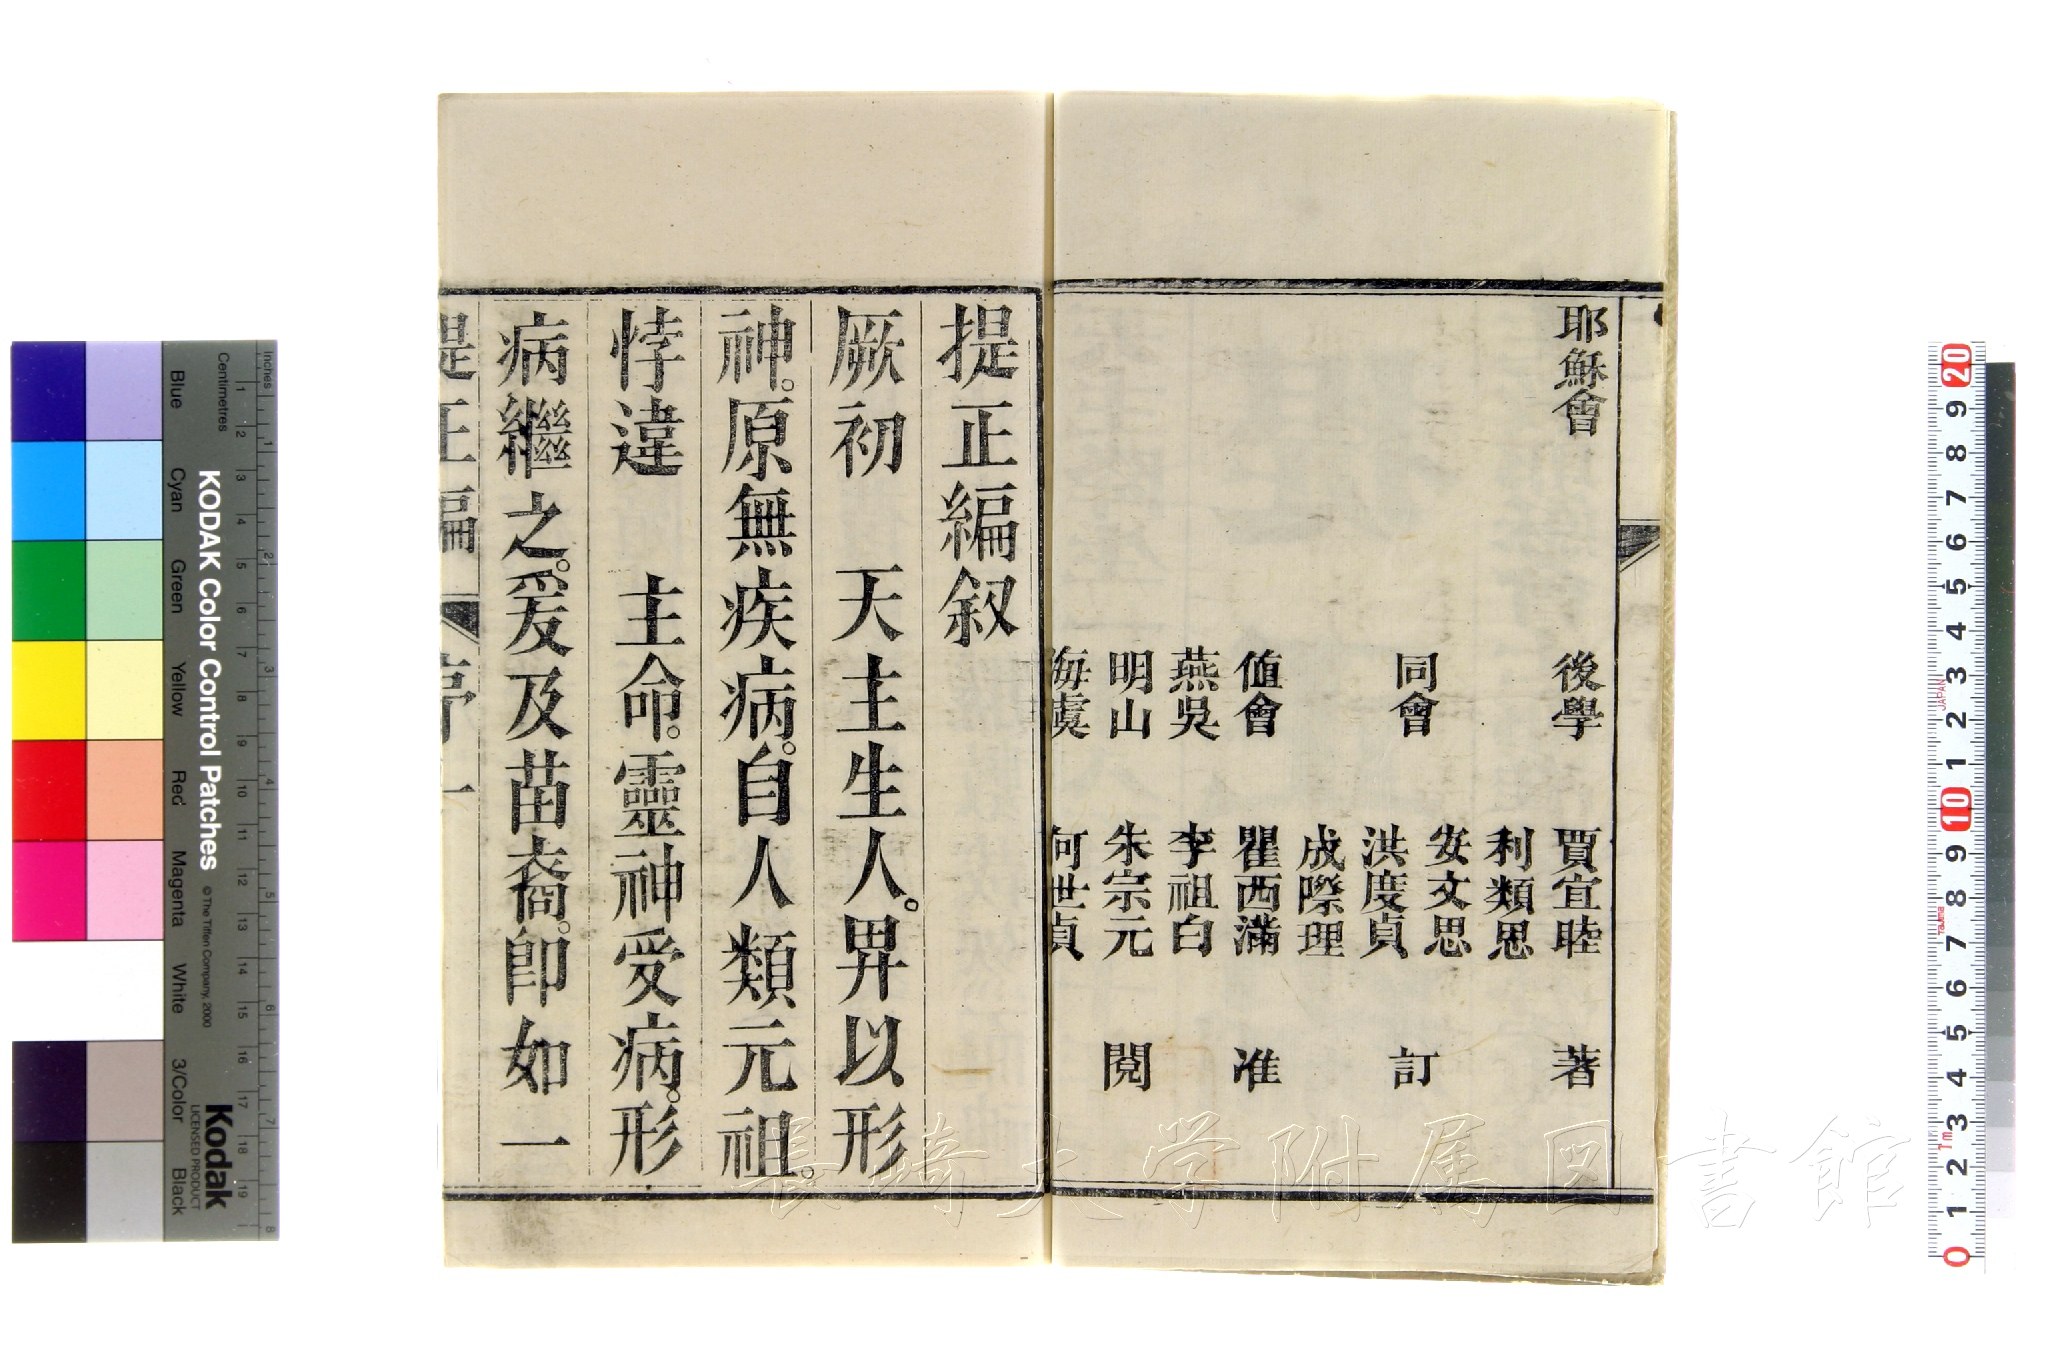 耶穌會 後學 賈宜睦 著
利類思
安文思
同會 洪度貞 訂
成際理
值會 瞿西滿 准
燕吳 李祖白
明山 朱宗元 閱
海虞 何世貞
提正編叙
厥初 天主生人。畀以形
神。原無疾病。自人類元祖。
悖違 主命。靈神受病。形
病繼之。爰及苗裔。卽如一
提正編 序 一
KODAK Color Control Patches
© The Tiffen Company, 2000
Kodak
LICENSED PRODUCT
Inches
Centimetres
Blue
Cyan
Green
Yellow
Red
Magenta
White
3/Color
Black
長崎大学附属図書館
JAPAN